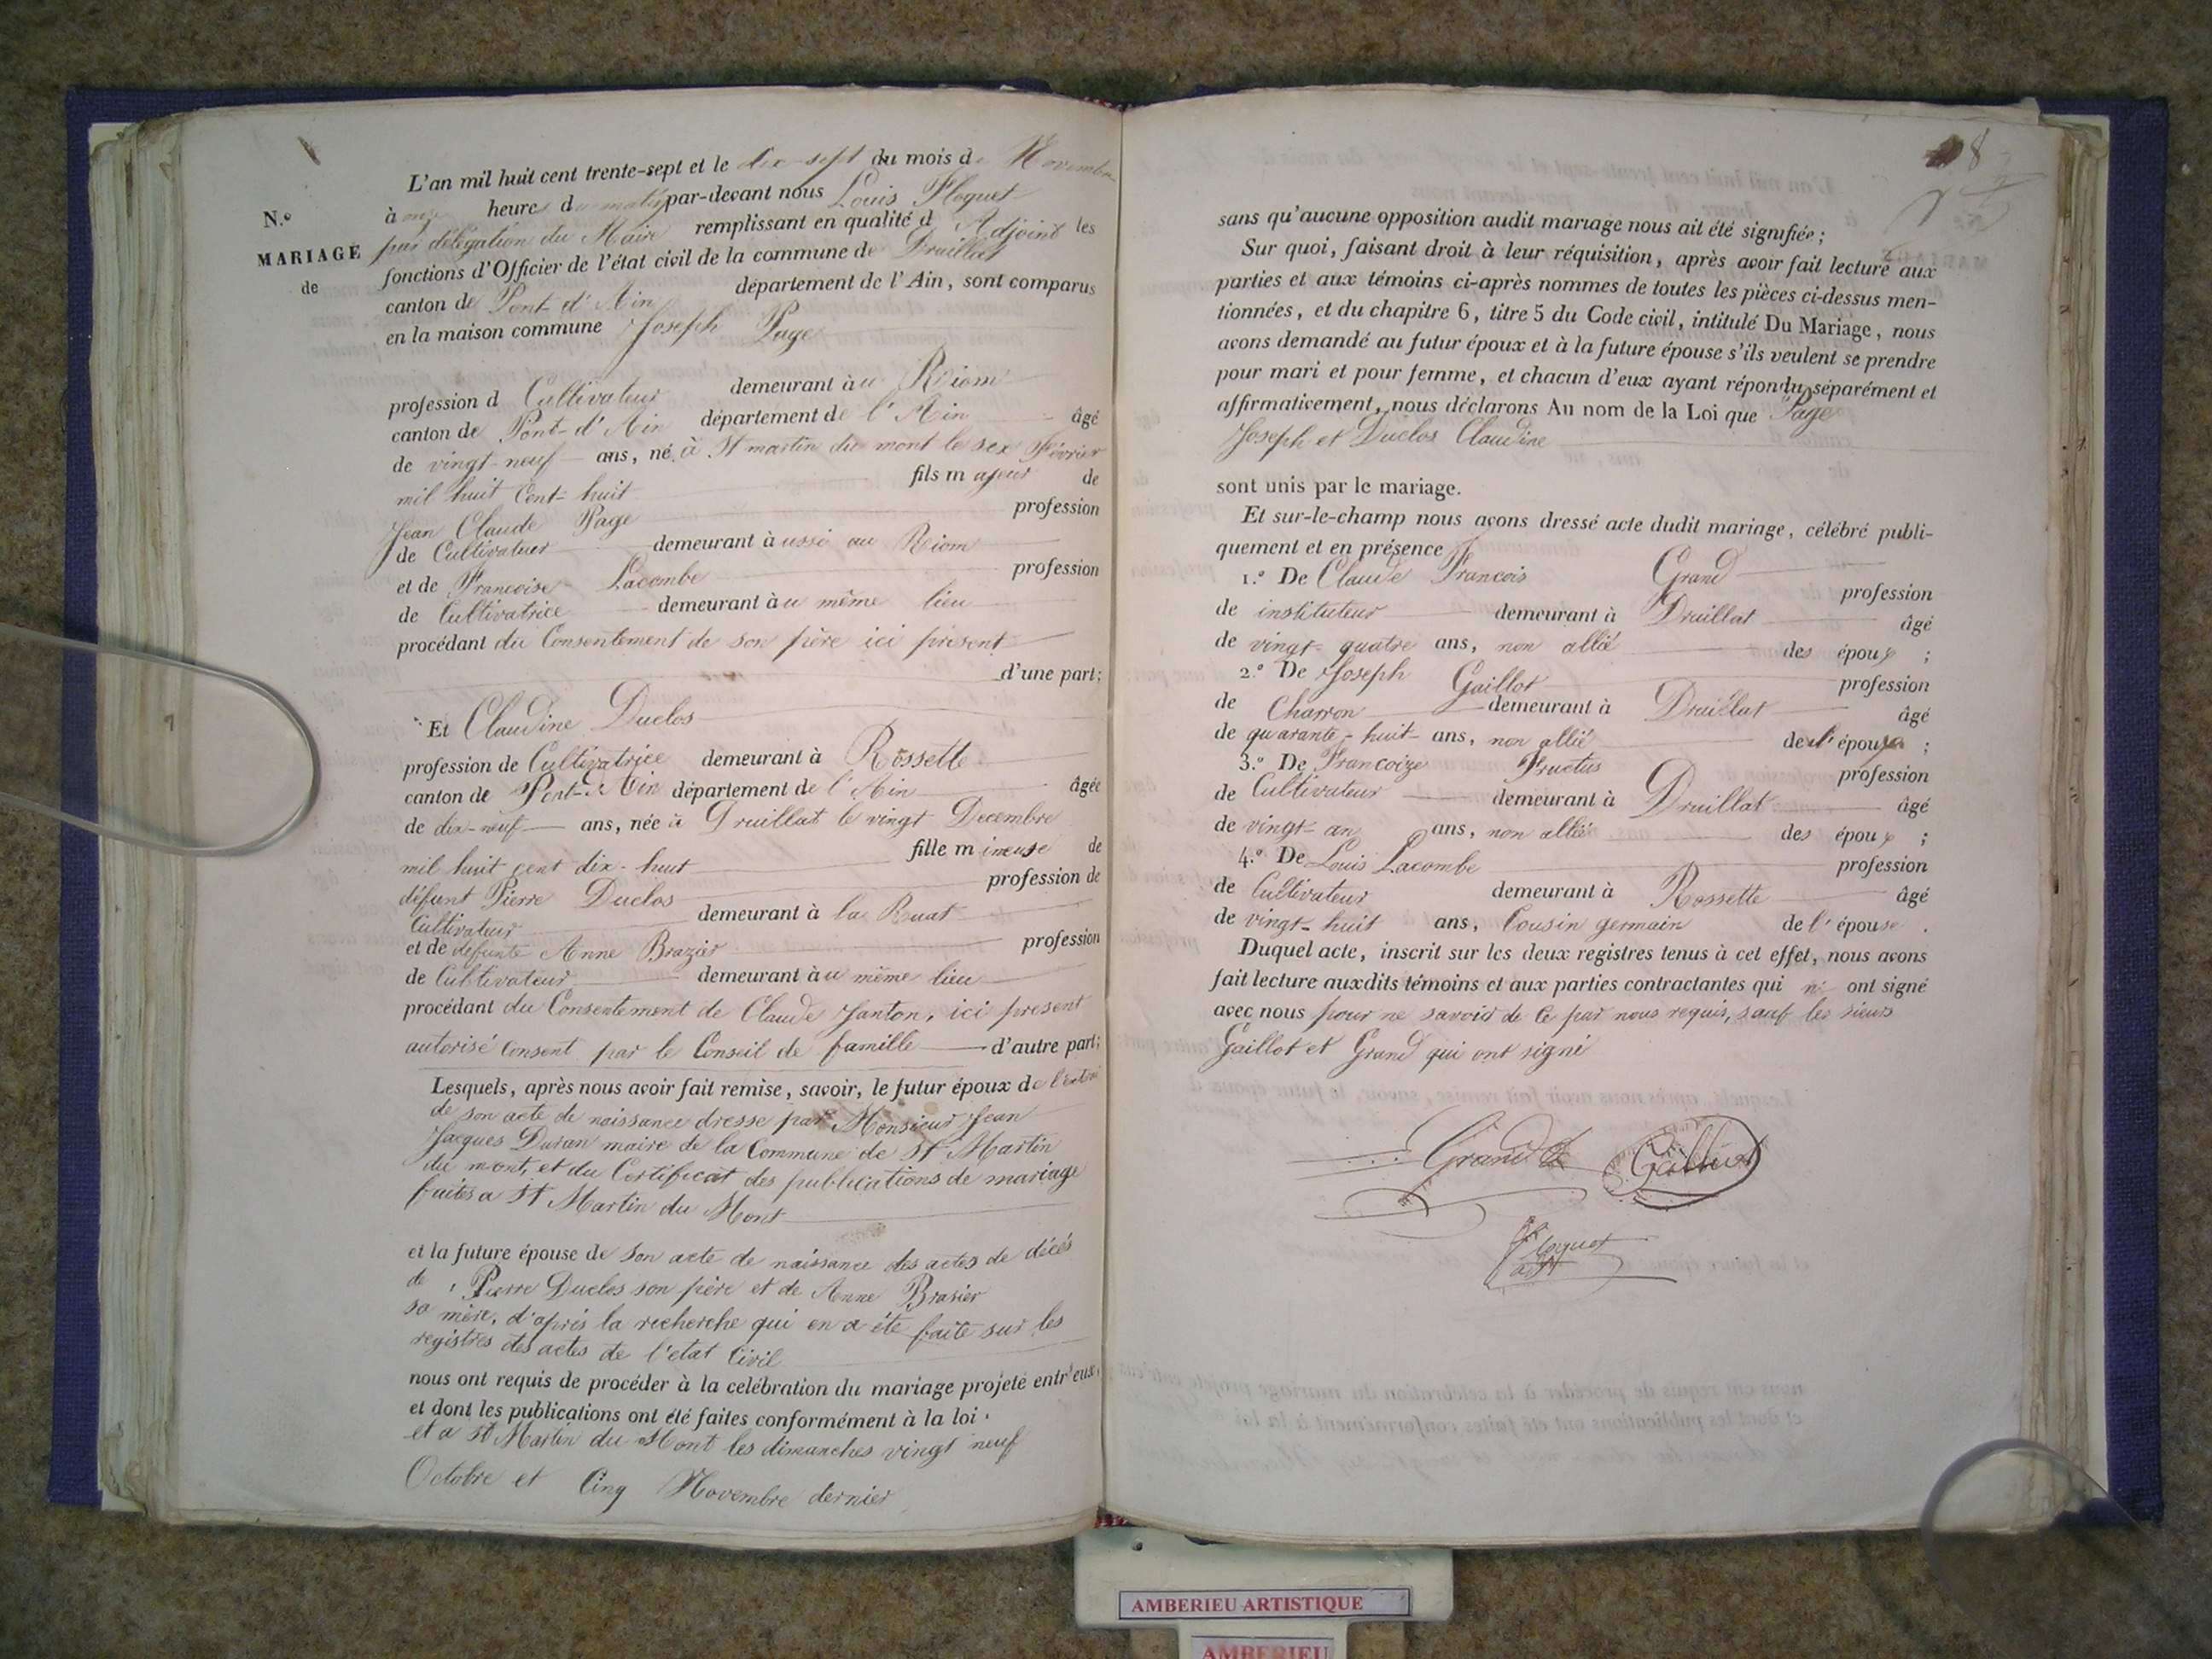 L'an mil huit cent trente-sept et le dix-sept du mois de Novembre
N.º
à onze heures du matin par-devant nous Louis Floquet
par délégation du Maire remplissant en qualité d'Adjoint les
MARIAGE
fonctions d'Officier de l'état civil de la commune de Druillat
de
canton de Pont-d'Ain département de l'Ain, sont comparus
en la maison commune Joseph Page
profession d Cultivateur demeurant à u Riom
canton de Pont-d'Ain département de l'Ain âgé
de vingt-neuf ans, né à St martin du mont le six Février
mil huit Cent-huit fils majeur de
Jean Claude Page profession
de Cultivateur demeurant à ussi au Riom
et de Francoise Lacombe profession
de Cultivatrice demeurant à u même lieu
procédant du Consentement de son père ici présent
d'une part;
Et Claudine Duclos
profession de Cultivatrice demeurant à Rossette
canton de Pont-d'Ain département de l'Ain âgée
de dix-neuf ans, née à Druillat le vingt Decembre
mil huit cent dix-huit fille mineuse de
défunt Pierre Duclos profession de
Cultivateur demeurant à la Ruat
et de défunte Anne Brazier profession
de Cultivateur demeurant à u même lieu
procédant du Consentement de Claude Janton, ici present
autorisé Consent par le Conseil de famille d'autre part;
Lesquels, après nous avoir fait remise, savoir, le futur époux de l'extrai
de son acte de naissance dresse par Monsieur Jean
Jacques Duran maire de la Commune de St Martin
du mont, et du Certificat des publications de mariage
faites a St Martin du Mont
et la future épouse de son acte de naissance des actes de décés
de Pierre Duclos son père et de Anne Brasier
sa mère, d'après la recherche qui en a été faite sur les
registres des actes de l'etat Civil
nous ont requis de procéder à la celébration du mariage projeté entr'eux,
et dont les publications ont été faites conformément à la loi.
et a St Martin du Mont les dimanches vingt neuf
Octobre et Cinq Novembre dernier
8
sans qu'aucune opposition audit mariage nous ait été signifiée;
Sur quoi, faisant droit à leur réquisition, après avoir fait lecture aux
parties et aux témoins ci-après nommes de toutes les pièces ci-dessus men-
tionnées, et du chapitre 6, titre 5 du Code civil, intitulé Du Mariage, nous
avons demandé au futur époux et à la future épouse s'ils veulent se prendre
pour mari et pour femme, et chacun d'eux ayant répondu séparément et
affirmativement, nous déclarons Au nom de la Loi que Page
Joseph et Duclos Claudine
sont unis par le mariage.
Et sur-le-champ nous avons dressé acte dudit mariage, célébré publi-
quement et en présence
1.º De Claude Francois Grand profession
de instituteur demeurant à Druillat âgé
de vingt-quatre ans, non allié des époux ;
2.º De Joseph Gaillot profession
de Charron demeurant à Druillat âgé
de quarante-huit ans, non allié de l'épouse ;
3.º De Francoize Fructus profession
de Cultivateur demeurant à Druillat âgé
de vingt-an ans, non alliée des époux ;
4.º De Louis Lacombe profession
de Cultivateur demeurant à Rossette âgé
de vingt-huit ans, Cousin germain de l'épouse .
Duquel acte, inscrit sur les deux registres tenus à cet effet, nous avons
fait lecture auxdits témoins et aux parties contractantes qui n' ont signé
avec nous pour ne savoir de Ce par nous requis, sauf les sieurs
Gaillot et Grand qui ont signé
Grand
Gaillot
Floquet
adjt
AMBERIEU ARTISTIQUE
AMBERIEU